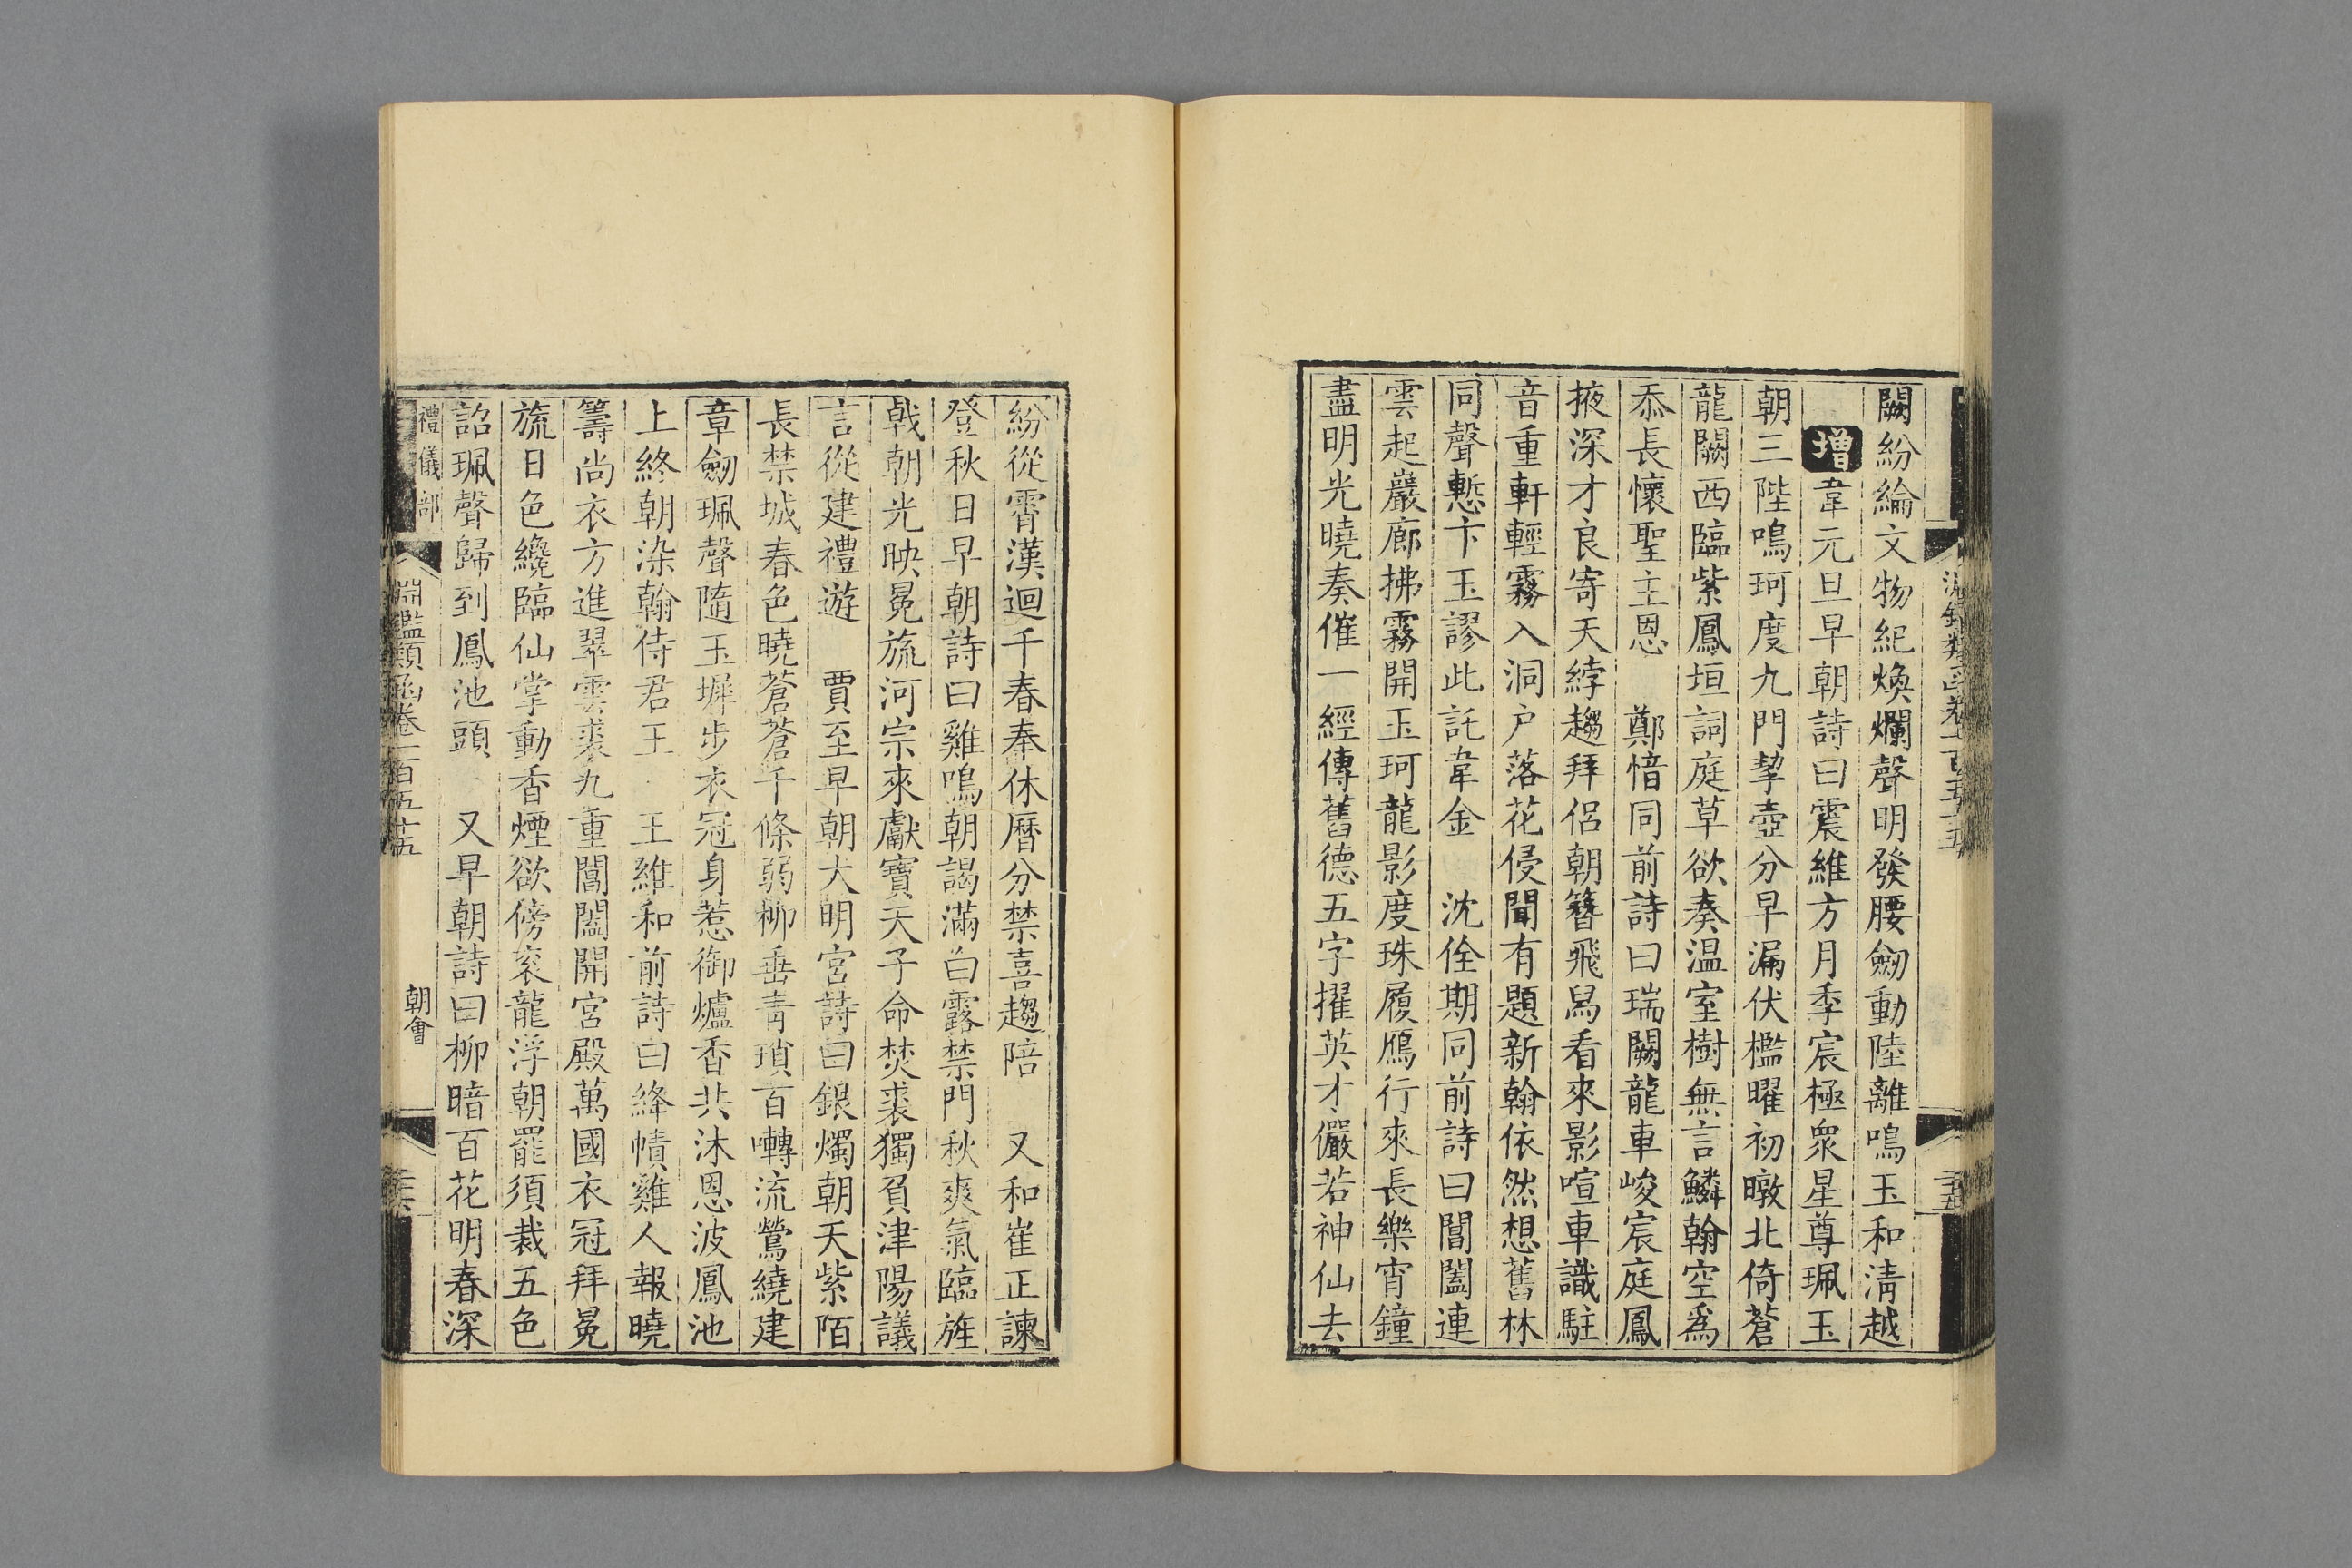 闕紛綸文物紀煥爛聲明發腰劒動陸離鳴玉和淸越
增韋元旦早朝詩曰震維方月季宸極衆星尊珮玉
朝三陛鳴珂度九門挈壺分早漏伏檻曜初暾北倚蒼
龍闕西臨紫鳳垣詞庭草欲奏温室樹無言鱗翰空爲
忝長懷聖主恩　鄭愔同前詩曰瑞闕龍車峻宸庭鳳
掖深才良寄天綍趨拜侶朝簪飛舄看來影喧車識駐
音重軒輕霧入洞户落花侵聞有題新翰依然想舊林
同聲慙卞玉謬此託韋金　沈佺期同前詩曰閶闔連
雲起巖廊拂霧開玉珂龍影度珠履鴈行來長樂宵鐘
盡明光曉奏催一經傳舊德五字擢英才儼若神仙去
紛從霄漢迴千春奉休曆分禁喜趨陪　又和崔正諫
登秋日早朝詩曰雞鳴朝謁滿白露禁門秋爽氣臨旌
戟朝光映冕旒河宗來獻寶天子命焚裘獨負津陽議
言從建禮遊　賈至早朝大明宮詩曰銀燭朝天紫陌
長禁城春色曉蒼蒼千條弱柳垂青瑣百囀流鶯繞建
章劒珮聲隨玉墀步衣冠身惹御爐香共沐恩波鳳池
上終朝染翰侍君王　王維和前詩曰絳幘雞人報曉
籌尚衣方進翠雲裘九重閶闔開宮殿萬國衣冠拜冕
旒日色纔臨仙掌動香煙欲傍衮龍浮朝罷須裁五色
詔珮聲歸到鳳池頭　又早朝詩曰柳暗百花明春深
禮儀部
淵鑑類函卷一百五十五
朝會